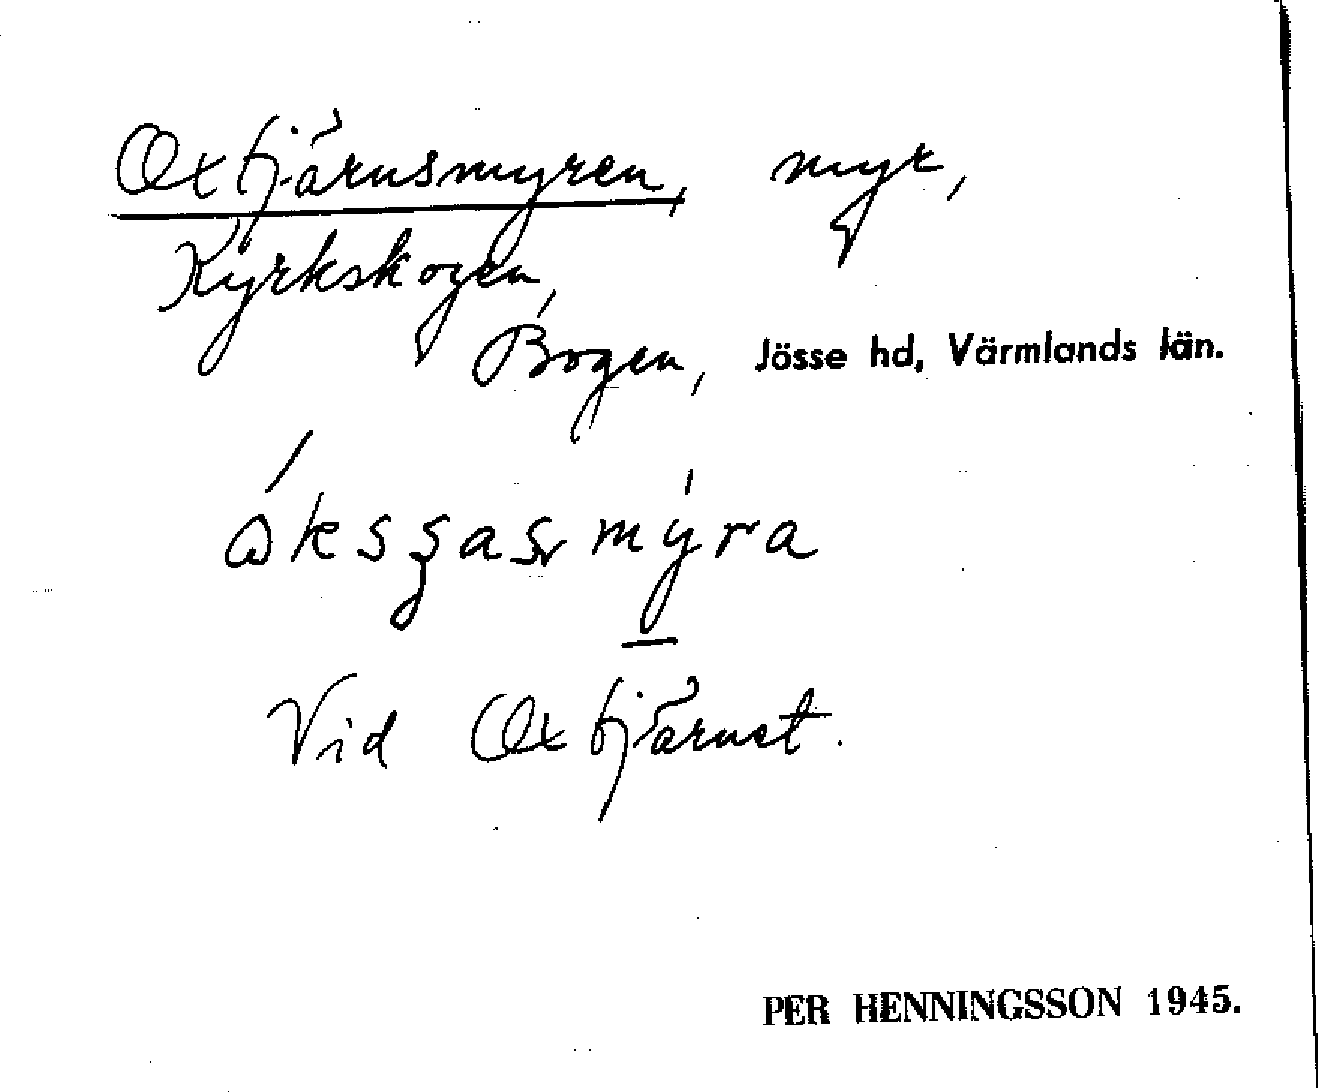 Oxtjärnsmyren, myr,
Kyrkskogen,
Bogen, Jösse hd, Värmlands län.
Vid Oxtjärnet.
PER HENNINGSSON 1945.